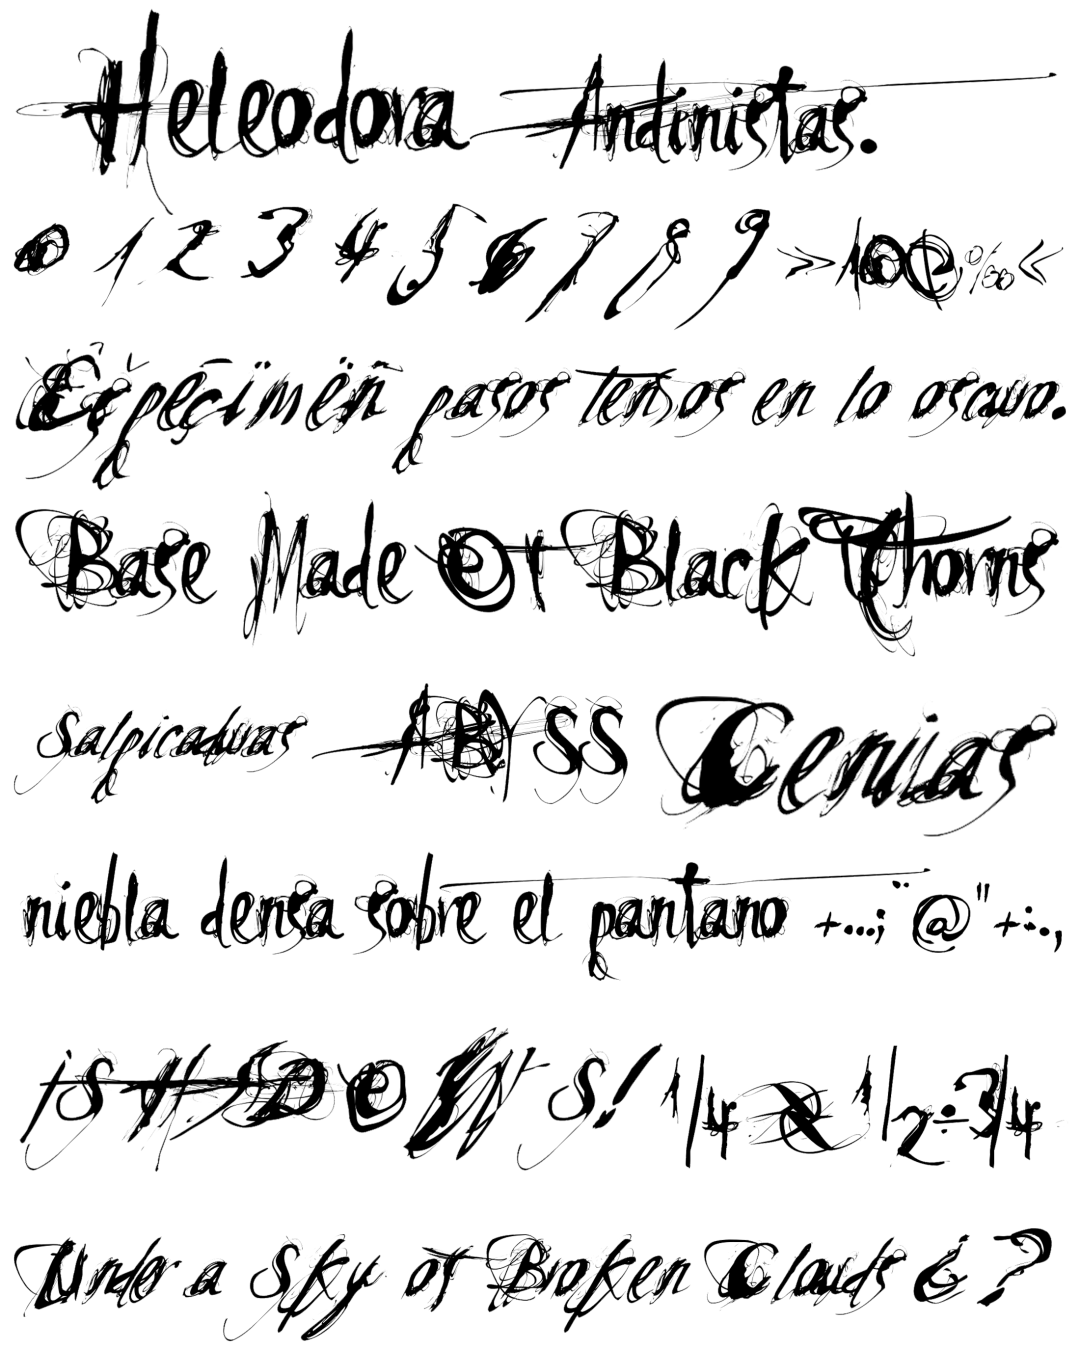 Heleodora Andinistas.
0 1 2 3 4 5 6 7 8 9 »100‰«
pasos tensos en lo oscuro.
Base Made Of Black Thorns
Salpicaduras ABYSS Cenizas
niebla densa sobre el pantano +...;¨@"+:.,
¡SHADOWS! 1/4 & 1/2÷3/4
Under a Sky of Broken Clouds ¿?